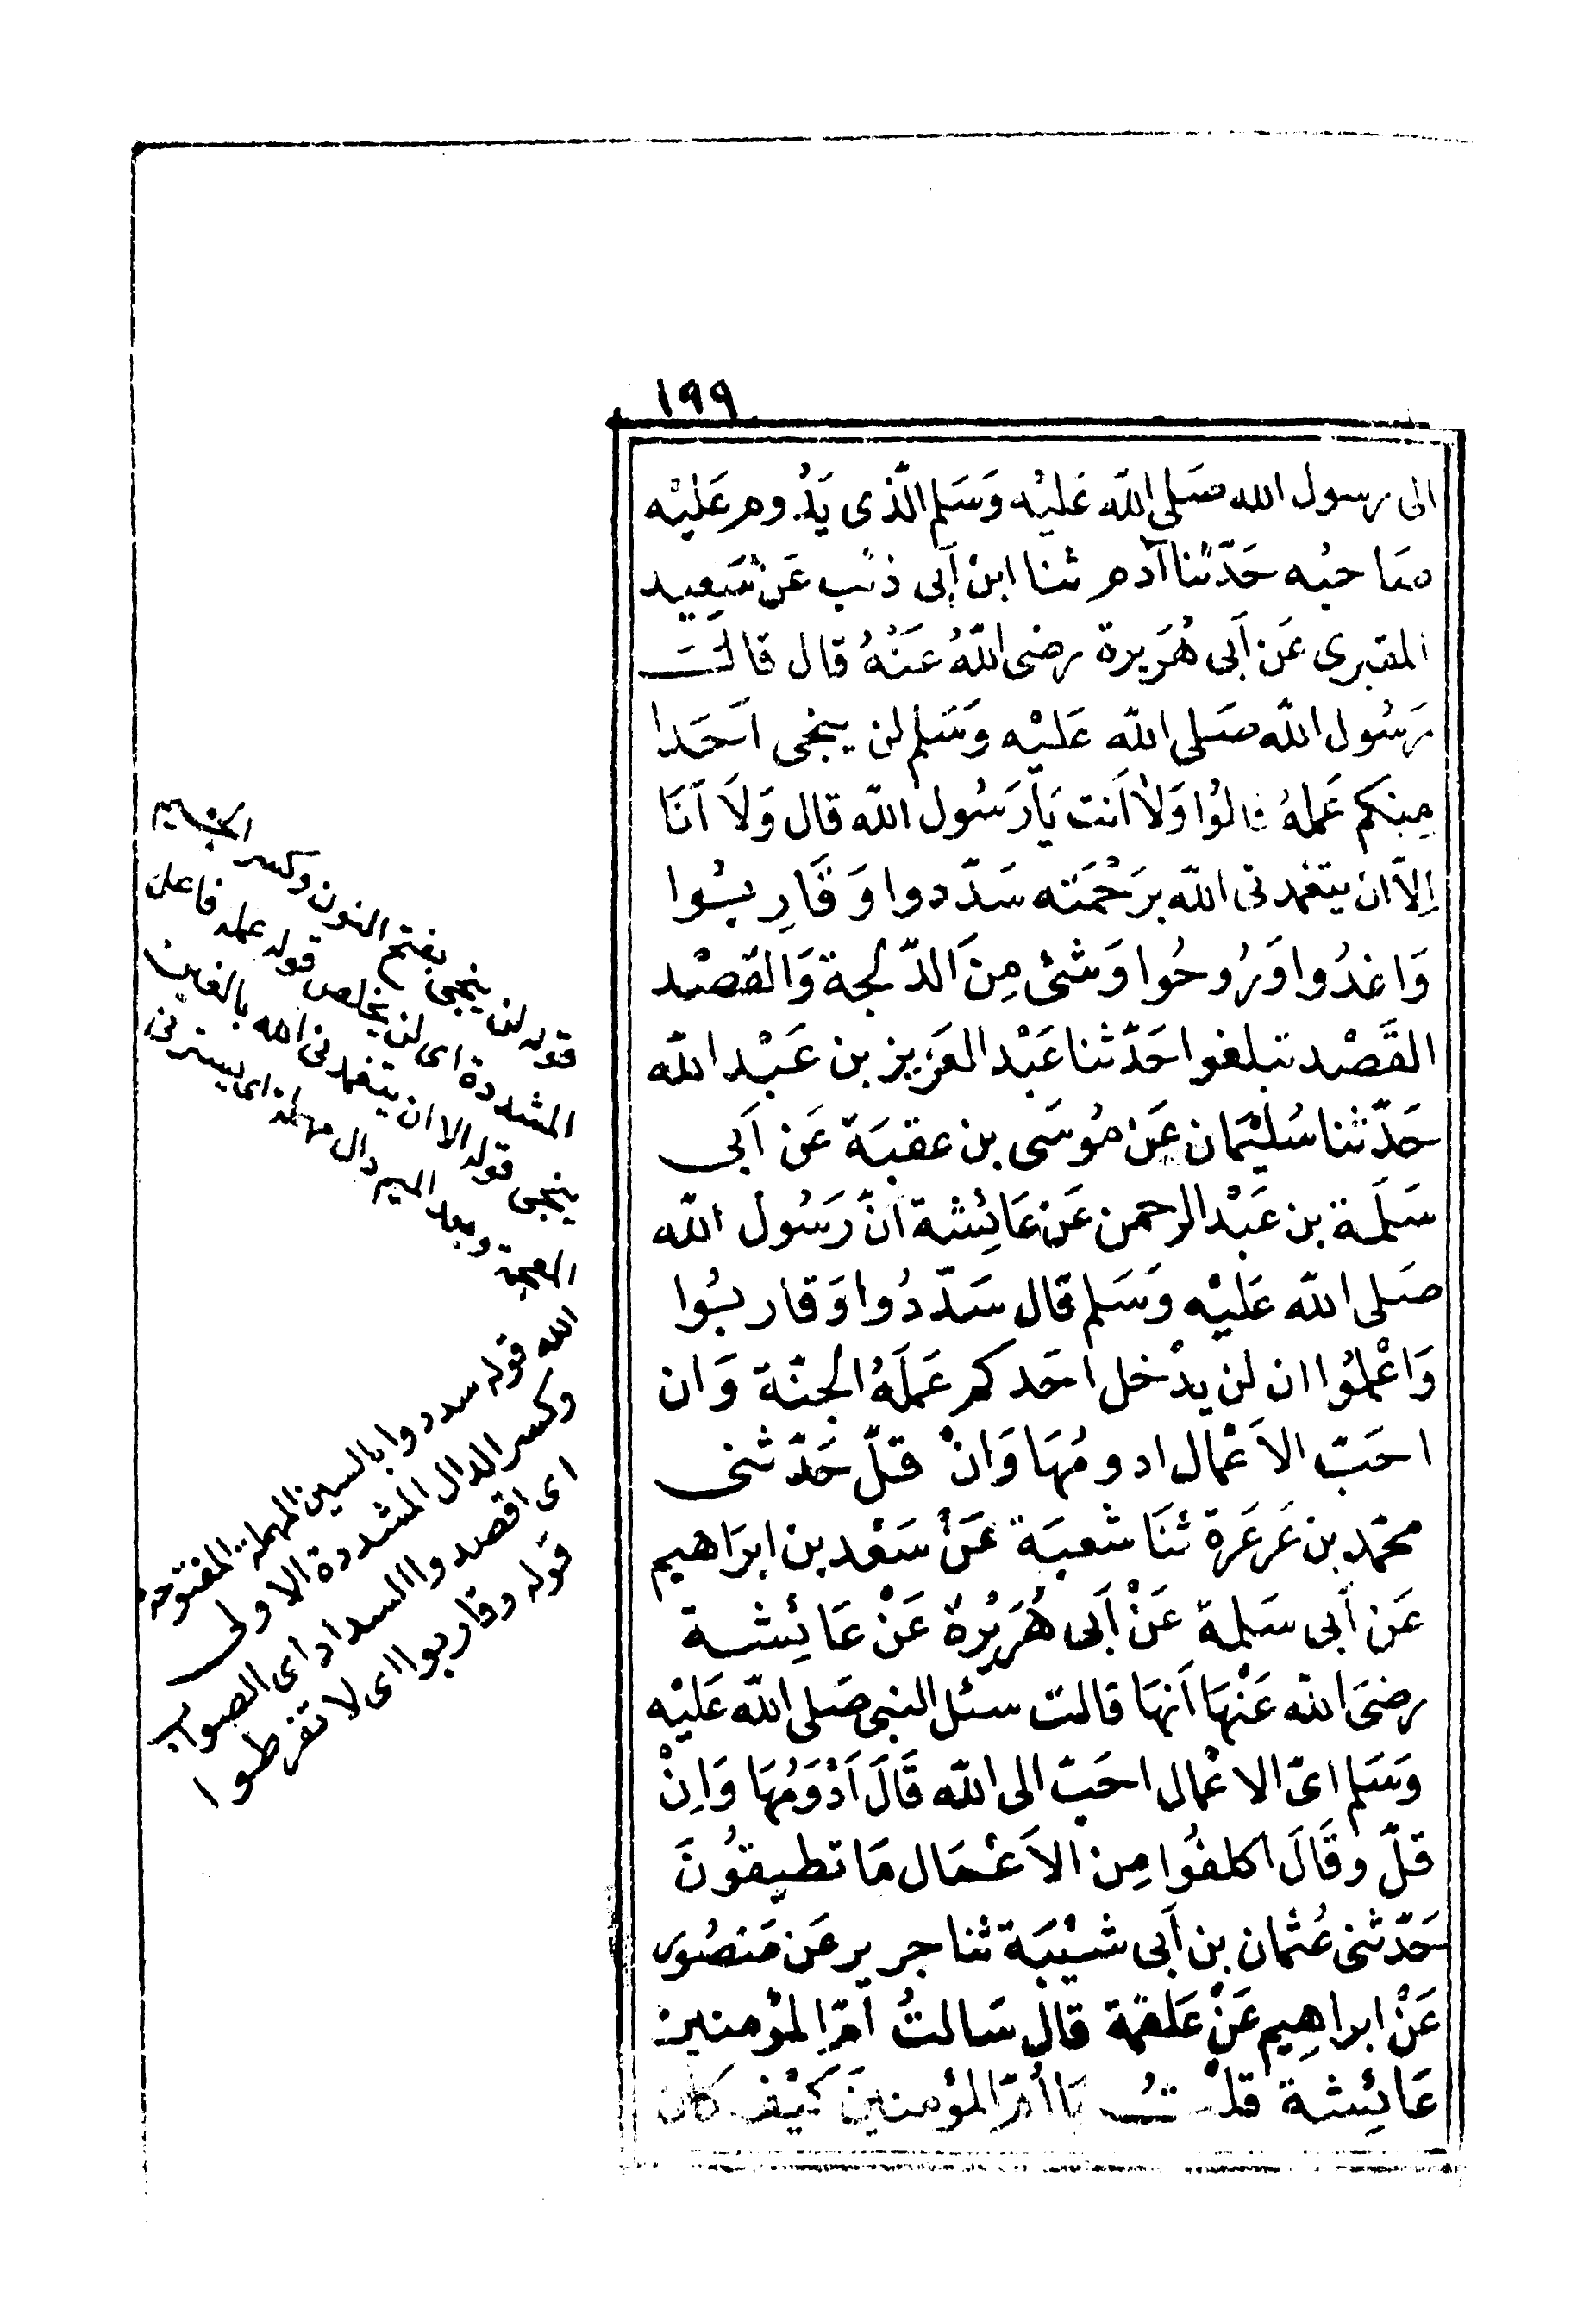 ١٩٩
الى رسول الله صَلى الله عَليْه وَسَلم الّذى يَدُوم عَليْه
صَاحبُه حَدّثنا آدم ثنا ابن أبى ذئب عَن سَعِيد
المقبرى عَن اَبى هُرَيرة رضى اللّهُ عَنْهُ قال قالَ
رَسُول اللّه صَلى اللّه عَليْه وَسَلم لن ينجى اَحَدا
مِنكم عَملهُ قالوُا وَلاَ اَنت يَا رَسُول اللّه قال وَلاَ اَنَا
اِلاّ ان يتغمدنى اللّه برَحْمَته سَدّدوا وَقَارِبُوا
وَاغدُوا وَرُوحُوا وَشئ مِنَ الدّلجة وَالقَصْد
القَصْد تبلغوا حَدّثنا عَبْد العَزيز بن عَبْد اللّه
حَدّثنا سُليْمان عَن مُوسَى بن عقبَة عَن اَبى
سَلَمة بن عَبْد الرحمن عَن عَائِشة اَنّ رَسُول اللّه
صَلى اللّه عَليْه وَسَلم قال سَدّدُوا وَقاربُوا
وَاعْلمُوا ان لن يدْخل احَدكم عَمَلَهُ الجنّة وَان
احَبّ الاَعْمال ادومُهَا وَانْ قلّ حَدّثنى
محمّد بن عَرعَرة ثنَا شعبَة عَنْ سَعْد بن ابرَاهيم
عَن اَبى سَلمة عَنْ اَبى هُرَيْرة عَنْ عَائِشة
رضىَ اللّه عَنْهَا اَنهَا قالت سئل النبى صَلى اللّه عَليْه
وَسَلم اىّ الاعْمال احَبّ الى اللّه قَالَ اَدْوَمُهَا وَاِنْ
قلّ وقَالَ اكلفُوا مِن الاَعْمَال مَا تطيقوُنَ
حَدّثنى عُثمان بن اَبى شيْبَة ثنا جرير عَن مَنصُور
عَنْ ابراهِيم عَنْ عَلقمَة قال سَالتُ امّ المؤمنين
عَائِشة قلْتُ يَا اُمّ المؤمنينَ كَيْف كان
قوله لن ينجى بفتح النون وكسر الجيم
المشددة اى لن يخلص قوله عمله فاعل
ينجى قوله الا ان يتغمدنى الله بالغين
المعجمة وبعد الميم دال مهملة اى يسترنى
الله قوله سددوا بالسين المهملة المفتوحه
وكسر الدال المشددة الاولى
اى اقصدوا السداد اى الصواب
قوله وقاربوا اى لا تفرطوا